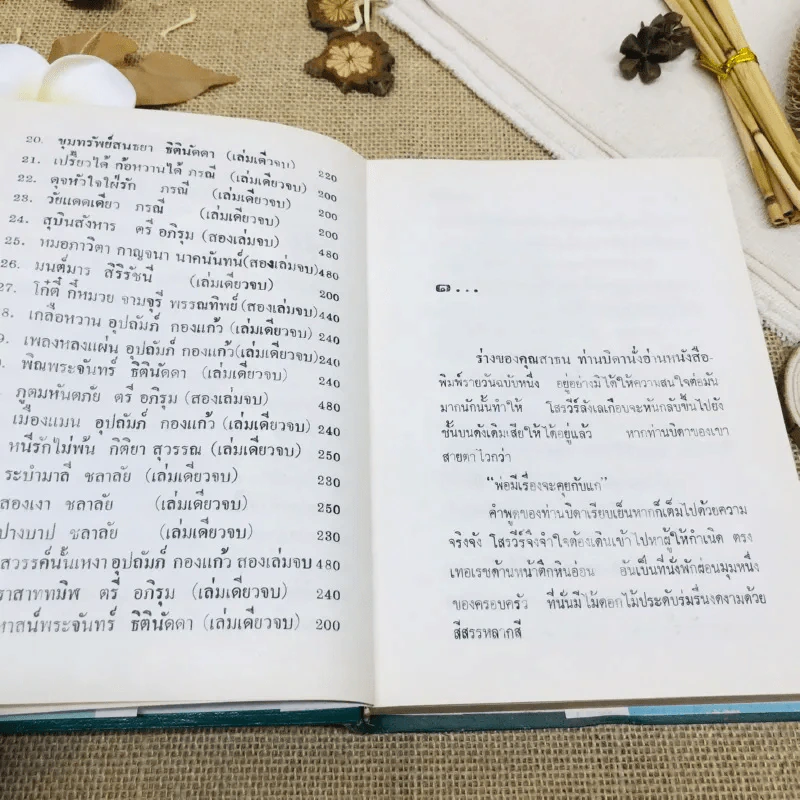 20. ขุมทรัพย์สนธยา ธิตินัดดา (เล่มเดียวจบ) 220
21. เปรี้ยวได้ ก้อหวานได้ ภรณี (เล่มเดียวจบ) 200
22. ดุจหัวใจใฝ่รัก ภรณี (เล่มเดียวจบ) 200
23. วัยแดดเดียว ภรณี (เล่มเดียวจบ) 200
24. สุบินสังหาร ตรี อภิรุม (สองเล่มจบ) 480
25. หมอภาวิตา กาญจนา นาคนันทน์ (สองเล่มจบ) 480
26. มนต์มาร สิริรัชนี (เล่มเดียวจบ) 200
27. โก๋ตี๋ กี๋หมวย จามจุรี พรรณทิพย์ (สองเล่มจบ) 440
8. เกลือหวาน อุปถัมภ์ กองแก้ว (เล่มเดียวจบ) 240
9. เพลงหลงแผ่น อุปถัมภ์ กองแก้ว (เล่มเดียวจบ) 240
. พิณพระจันทร์ ธิตินัดดา (เล่มเดียวจบ) 240
ภูตมหันตภัย ตรี อภิรุม (สองเล่มจบ) 480
เมืองแมน อุปถัมภ์ กองแก้ว (เล่มเดียวจบ) 240
หนีรักไม่พ้น กิติยา สุวรรณ (เล่มเดียวจบ) 250
ระบำมาลี ชลาลัย (เล่มเดียวจบ) 230
สองเงา ชลาลัย (เล่มเดียวจบ) 250
ปางบาป ชลาลัย (เล่มเดียวจบ) 230
สวรรค์นั้นเหงา อุปถัมภ์ กองแก้ว สองเล่มจบ 480
ราสาททมิฬ ตรี อภิรุม (เล่มเดียวจบ) 240
หาสน์พระจันทร์ ธิตินัดดา (เล่มเดียวจบ) 200
๑...
ร่างของคุณสาธน ท่านบิดานั่งอ่านหนังสือ-
พิมพ์รายวันฉบับหนึ่ง อยู่อย่างมิได้ให้ความสนใจต่อมัน
มากนักนั้นทำให้ โสรวีร์ลังเลเกือบจะหันกลับขึ้นไปยัง
ชั้นบนดังเดิมเสียให้ได้อยู่แล้ว หากท่านบิดาของเขา
สายตาไวกว่า
“พ่อมีเรื่องจะคุยกับแก”
คำพูดของท่านบิดาเรียบเย็นหากก็เต็มไปด้วยความ
จริงจัง โสรวีร์จึงจำใจต้องเดินเข้าไปหาผู้ให้กำเนิด ตรง
เทอเรซด้านหน้าตึกหินอ่อน อันเป็นที่นั่งพักผ่อนมุมหนึ่ง
ของครอบครัว ที่นั่นมีไม้ดอกไม้ประดับร่มรื่นงดงามด้วย
สีสรรหลากสี